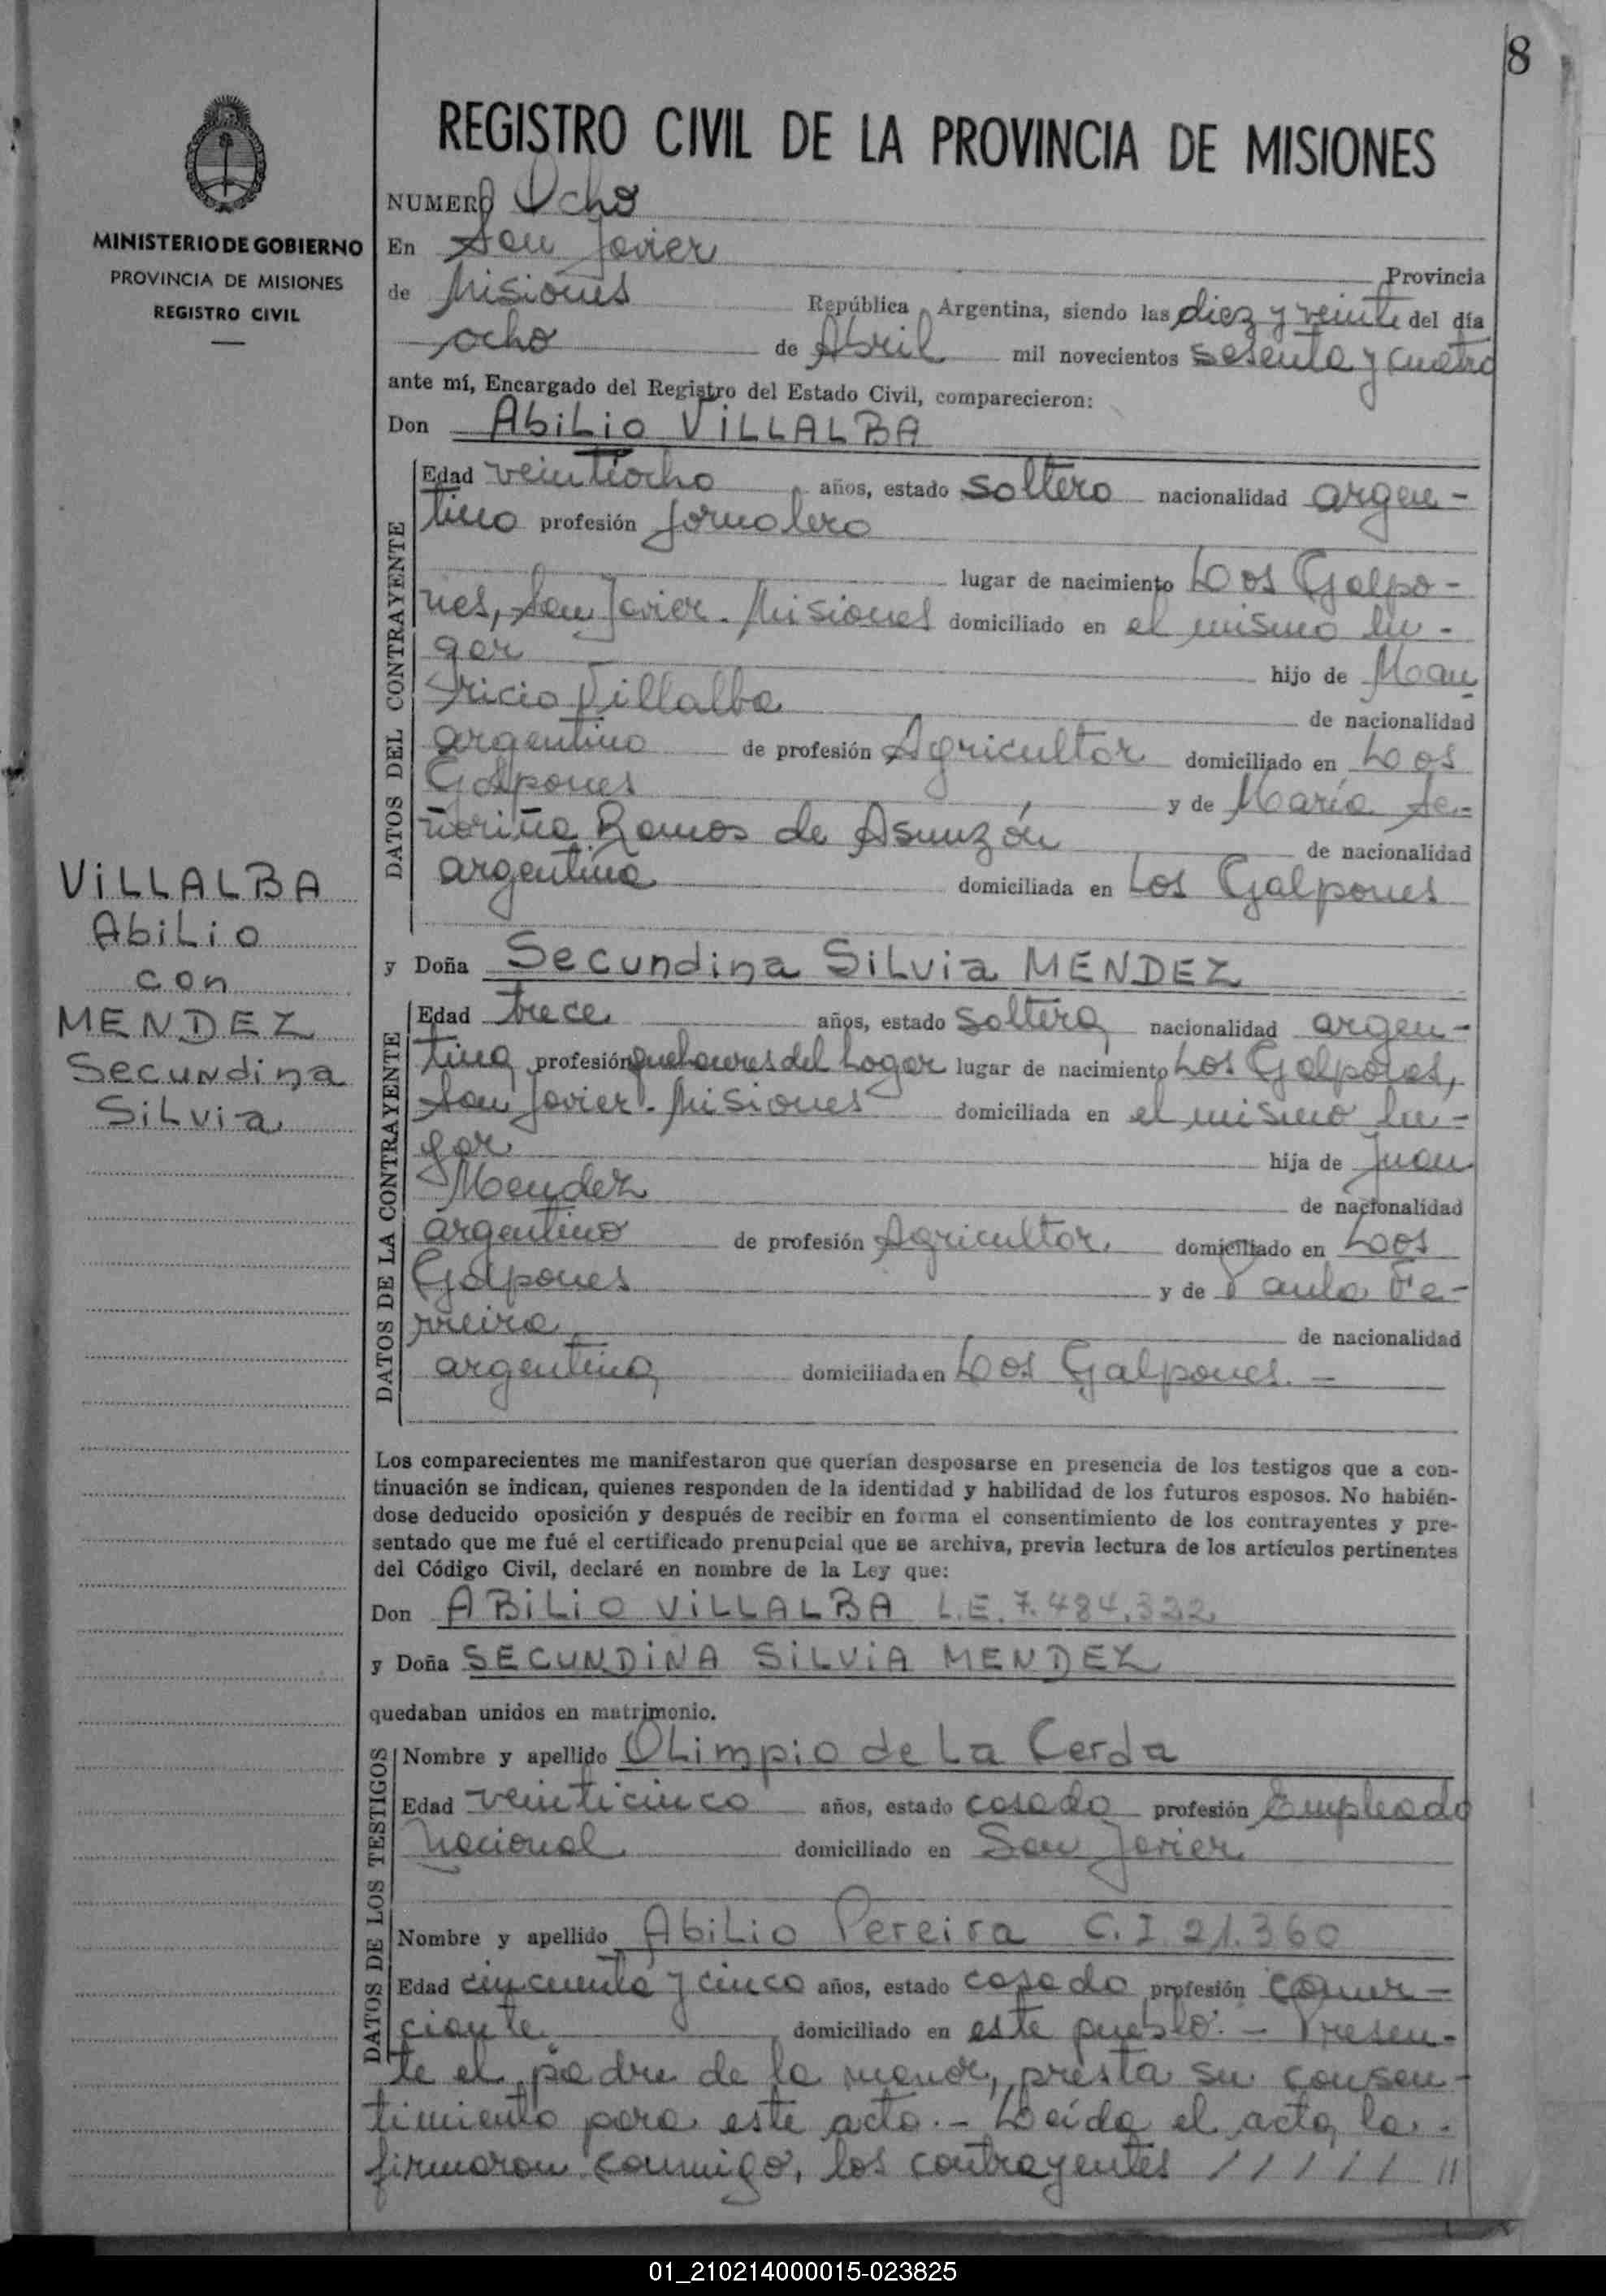 8
REGISTRO CIVIL DE LA PROVINCIA DE MISIONES
MINISTERIO DE GOBIERNO
PROVINCIA DE MISIONES
REGISTRO CIVIL
VILLALBA
Abilio
con
MENDEZ
Secundina
Silvia
NUMERO Ocho
En San Javier Provincia
de Misiones República Argentina, siendo las diez y veinte del día
ocho de Abril mil novecientos sesenta y cuatro
ante mí, Encargado del Registro del Estado Civil, comparecieron:
Don Abilio VILLALBA
DATOS DEL CONTRAYENTE
Edad veintiocho años, estado soltero nacionalidad argen-
tino profesión jornalero
lugar de nacimiento Los Galpo-
nes, San Javier. Misiones domiciliado en el mismo lu-
gar hijo de Mau
ricio Villalba de nacionalidad
argentino de profesión Agricultor domiciliado en Los
Galpones y de María Se-
ñoriña Ramos de Asunzón de nacionalidad
argentina domiciliada en Los Galpones
y Doña Secundina Silvia MENDEZ
DATOS DE LA CONTRAYENTE
Edad trece años, estado soltera nacionalidad argen-
tina profesión quehaceres del hogar lugar de nacimiento Los Galpones,
San Javier. Misiones domiciliada en el mismo lu-
gar hija de Juan
Mendez de nacionalidad
argentino de profesión Agricultor domiciliado en Los
Galpones y de Paula Fe-
rreira de nacionalidad
argentina domiciliada en Los Galpones. -
Los comparecientes me manifestaron que querían desposarse en presencia de los testigos que a con-
tinuación se indican, quienes responden de la identidad y habilidad de los futuros esposos. No habién-
dose deducido oposición y después de recibir en forma el consentimiento de los contrayentes y pre-
sentado que me fué el certificado prenupcial que se archiva, previa lectura de los artículos pertinentes
del Código Civil, declaré en nombre de la Ley que:
Don ABILIO VILLALBA L.E. 7.484.332
y Doña SECUNDINA SILVIA MENDEZ
quedaban unidos en matrimonio.
DATOS DE LOS TESTIGOS
Nombre y apellido Olimpio de La Cerda
Edad veinticinco años, estado casado profesión Empleado
Nacional domiciliado en San Javier
Nombre y apellido Abilio Pereira C.I. 21.360
Edad cincuenta y cinco años, estado casado profesión comer-
ciante domiciliado en este pueblo. - Presen-
te el padre de la menor, presta su consen-
timiento para este acto. - Leída el acta, la
firmaron conmigo, los contrayentes / / / / / //
01_210214000015-023825